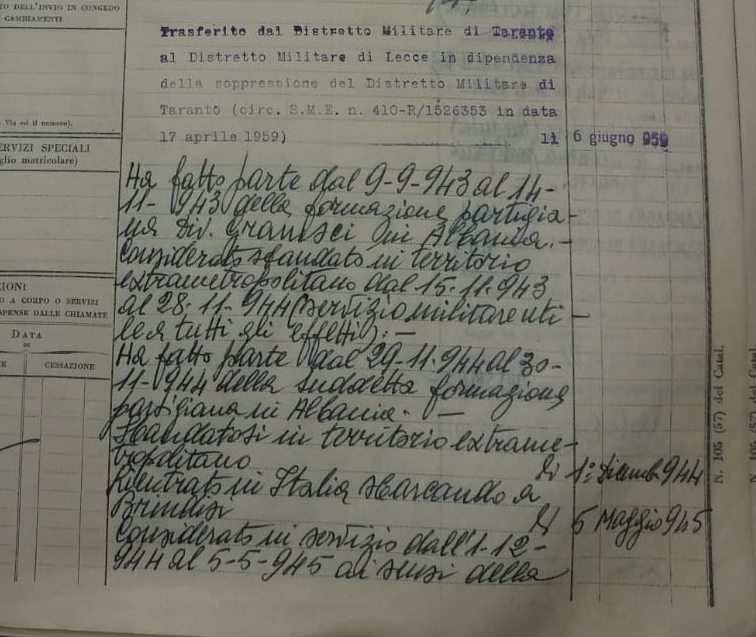 TO DELL'INVIO IN CONGEDO
CAMBIAMENTI
Via ed il numero).
ERVIZI SPECIALI
glio matricolare)
ZIONI
O A CORPO O SERVIZI
SPENSE DALLE CHIAMATE
DATA
DI
CESSAZIONE
Trasferito dal Distretto Militare di Taranto
al Distretto Militare di Lecce in dipendenza
della soppressione del Distretto Militare di
Taranto (circ. S.M.E. n. 410-R/1526353 in data
17 aprile 1959) li 6 giugno 959
Ha fatto parte dal 9-9-943 al 14-
11-943 della formazione partigia-
na Div. Gramsci in Albania.-
Considerato sbandato in territorio
extrametropolitano dal 15.11.943
al 28.11.944 (servizio militare uti-
le a tutti gli effetti).-
Ha fatto parte dal 29-11-944 al 30-
11-944 della suddetta formazione
partigiana in Albania. -
Sbandatosi in territorio extrame-
tropolitano li 1° Dicemb. 944
Rientrato in Italia sbarcando a
Brindisi li 5 Maggio 945
Considerato in servizio dall'1-12-
944 al 5-5-945 ai sensi della
N. 105 (57) del Catal.
N. 105 (57) del Catal.